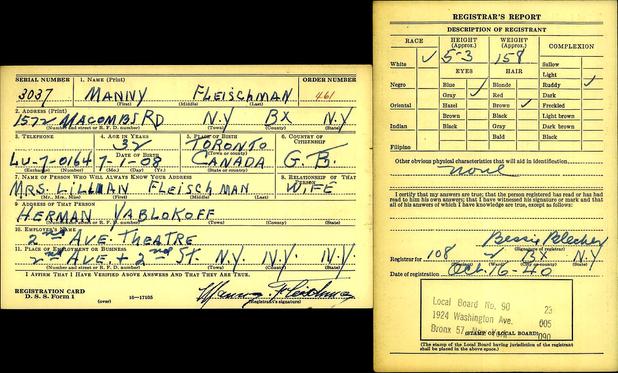 SERIAL NUMBER 1. NAME (Print) ORDER NUMBER
3037 MANNY FLEISCHMAN 461
(First) (Middle) (Last)
2. ADDRESS (Print)
1572 MACOMBS RD N.Y BX N.Y
(Number and street or R. F. D. number) (Town) (County) (State)
3. TELEPHONE 4. AGE IN YEARS 5. PLACE OF BIRTH 6. COUNTRY OF CITIZENSHIP
32 TORONTO
DATE OF BIRTH (Town or county)
LU-7-0164 7-1-08 CANADA G.B.
(Exchange) (Number) (Mo.) (Day) (Yr.) (State or country)
7. NAME OF PERSON WHO WILL ALWAYS KNOW YOUR ADDRESS 8. RELATIONSHIP OF THAT PERSON
MRS. LILLIAN FLEISCHMAN WIFE
(Mr., Mrs., Miss) (First) (Middle) (Last)
9. ADDRESS OF THAT PERSON
HERMAN YABLOKOFF
(Number and street or R. F. D. number) (Town) (County) (State)
10. EMPLOYER'S NAME
2nd AVE. THEATRE
11. PLACE OF EMPLOYMENT OR BUSINESS
2nd AVE. + 2nd ST. N.Y. N.Y. N.Y.
(Number and street or R. F. D. number) (Town) (County) (State)
I AFFIRM THAT I HAVE VERIFIED ABOVE ANSWERS AND THAT THEY ARE TRUE.
REGISTRATION CARD
D. S. S. Form 1 (over) 16—17105 Manny Fleischman
(Registrant's signature)
REGISTRAR'S REPORT
DESCRIPTION OF REGISTRANT
RACE HEIGHT (Approx.) WEIGHT (Approx.) COMPLEXION
White ✓ 5-3 158 Sallow
EYES HAIR Light
Negro Blue ✓ Blonde Ruddy ✓
Gray Red Dark
Oriental Hazel Brown ✓ Freckled
Brown Black Light brown
Indian Black Gray Dark brown
Bald Black
Filipino
Other obvious physical characteristics that will aid in identification
none
I certify that my answers are true; that the person registered has read or has had
read to him his own answers; that I have witnessed his signature or mark and that
all of his answers of which I have knowledge are true, except as follows:
Bessie
(Signature of registrar)
Registrar for 108 BX N.Y
(Ward) (City or county) (State)
Date of registration Oct. 16-40
Local Board No. 90 23
1924 Washington Ave. 005
Bronx 57, 090
(STAMP OF LOCAL BOARD)
(The stamp of the Local Board having jurisdiction of the registrant
shall be placed in the above space.)